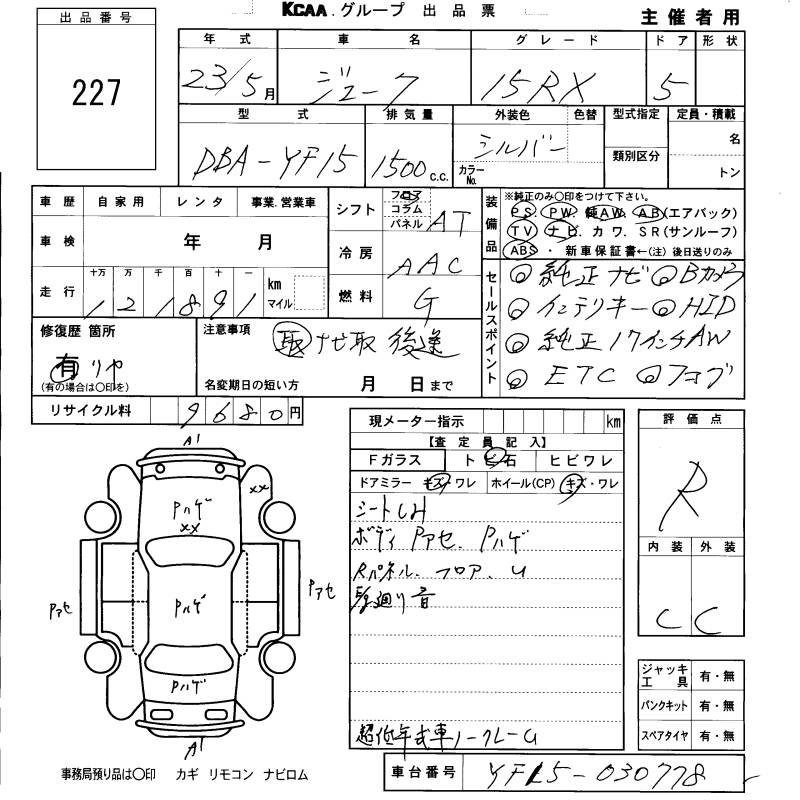 KCAA.グループ 出品票
主催者用
出品番号
227
年式 車名 グレード ドア 形状
23/5月 ジューク 15RX 5
型式 排気量 外装色 色替 型式指定 定員・積載
DBA-YF15 1500 c.c. シルバー カラーNo. 類別区分 名
トン
車歴 自家用 レンタ 事業.営業車
車検 年 月
走行 十万 万 千 百 十 一 km マイル
121891
シフト フロア コラム パネル AT
冷房 AAC
燃料 G
装備品
※純正のみ〇印をつけて下さい。
PS. PW. 純AW. AB(エアバック)
TV ナビ. カワ. SR(サンルーフ)
ABS ・ 新車保証書←(注) 後日送りのみ
セールスポイント
◎純正ナビ ◎Bカメラ
◎インテリキー ◎HID
◎純正17インチAW
◎ETC ◎フコブ
修復歴 箇所
有 リヤ
(有の場合は〇印を)
注意事項
取 ナビ取 後送
名変期日の短い方 月 日まで
リサイクル料 9680円
現メーター指示 km
【査定員記入】
Fガラス トビ石 ヒビワレ
ドアミラー キズ・ワレ ホイール(CP) キズ・ワレ
シートシミ
ボディ Pアセ、Pハゲ
Rパネル、フロア、U
廻り音
超低年式車ノークレーム
評価点
R
内装 外装
C C
ジャッキ工具 有・無
パンクキット 有・無
スペアタイヤ 有・無
A1
Pハゲ
XX
XX
Pハゲ
Pアセ
Pアセ
Pハゲ
A1
事務局預り品は〇印 カギ リモコン ナビロム
車台番号 YF15-030778